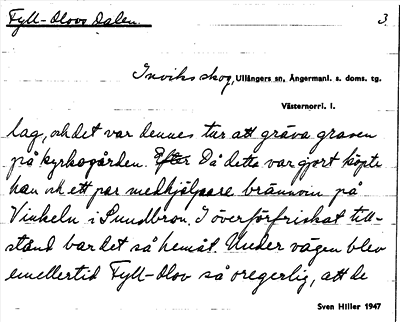 Fyll-Olovs Dalen. 3.
Inviks skog, Ullångers sn, Ångermanl. s. doms. tg.
Västernorrl. l.
lag, och det var dennes tur att gräva graven
på kyrkogården. Efter Då detta var gjort köpte
han och ett par medhjälpare brännvin på
Vinkeln i Sundbron. I överförfriskat till-
stånd bar det så hemåt. Under vägen blev
emellertid Fyll-Olov så oregerlig, att de
Sven Hiller 1947